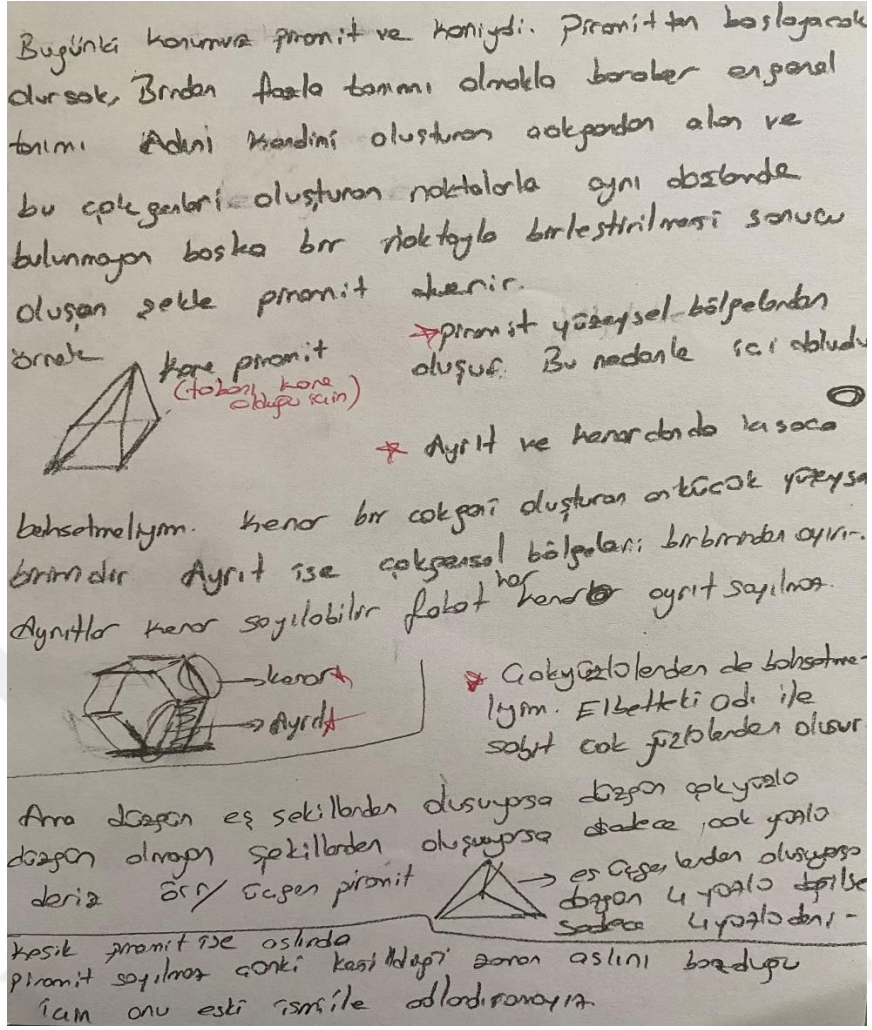 Bugünkü konumuz piramit ve koniydi. Piramitten başlayacak
olursak, Birden fazla tanımı olmakla beraber en genel
tanımı Adını kendini oluşturan çokgenden alan ve
bu çokgenleri oluşturan noktalarla aynı düzlemde
bulunmayan başka bir noktayla birleştirilmesi sonucu
oluşan şekle piramit denir.
örnek kare piramit
(tabanı kare
olduğu için)
* piramit yüzeysel bölgelerden
oluşur. Bu nedenle içi doludu
* Ayrıt ve kenardanda kısaca
bahsetmeliyim. Kenar bir çokgeni oluşturan en küçük yüzeyse
birimdir Ayrıt ise çokgensel bölgeleri birbirinden ayırır.
Ayrıtlar kenar sayılabilir fakat her kenar ayrıt sayılmaz.
→ kenar
→ Ayrıt
* Çokyüzlülerden de bahsetme-
liyim. Elbetteki adı ile
sabit çok yüzlülerden oluşur
Ama düzgün eş şekillerden oluşuyorsa düzgün çokyüzlü
düzgün olmayan şekillerden oluşuyorsa sadece çok yüzlü
deriz örn/ üçgen piramit
→ eş üçgenlerden oluşuyorsa
düzgün 4 yüzlü değilse
sadece 4 yüzlü deni-
kesik piramit ise aslında
piramit sayılmaz çünkü kesildiği zaman aslını bozduğu
için onu eski ismi ile adlandıramayız.